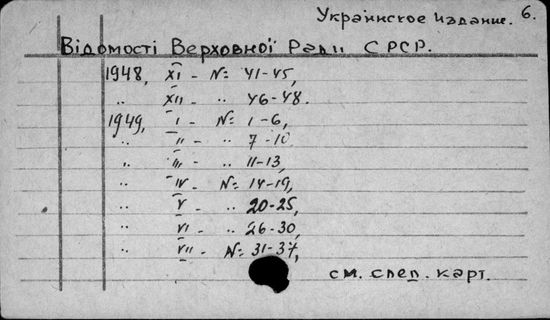 Украинское издание. 6.
Відомості Верховної Ради СРСР.
1948, XI - № 41-45,
" XII - " 46-48.
1949, I - № 1-6,
" II - " 7-10
" III - " 11-13,
" IV - № 14-19,
" V - " 20-25,
" VI - " 26-30,
" VII - № 31-37,
см. след. карт.